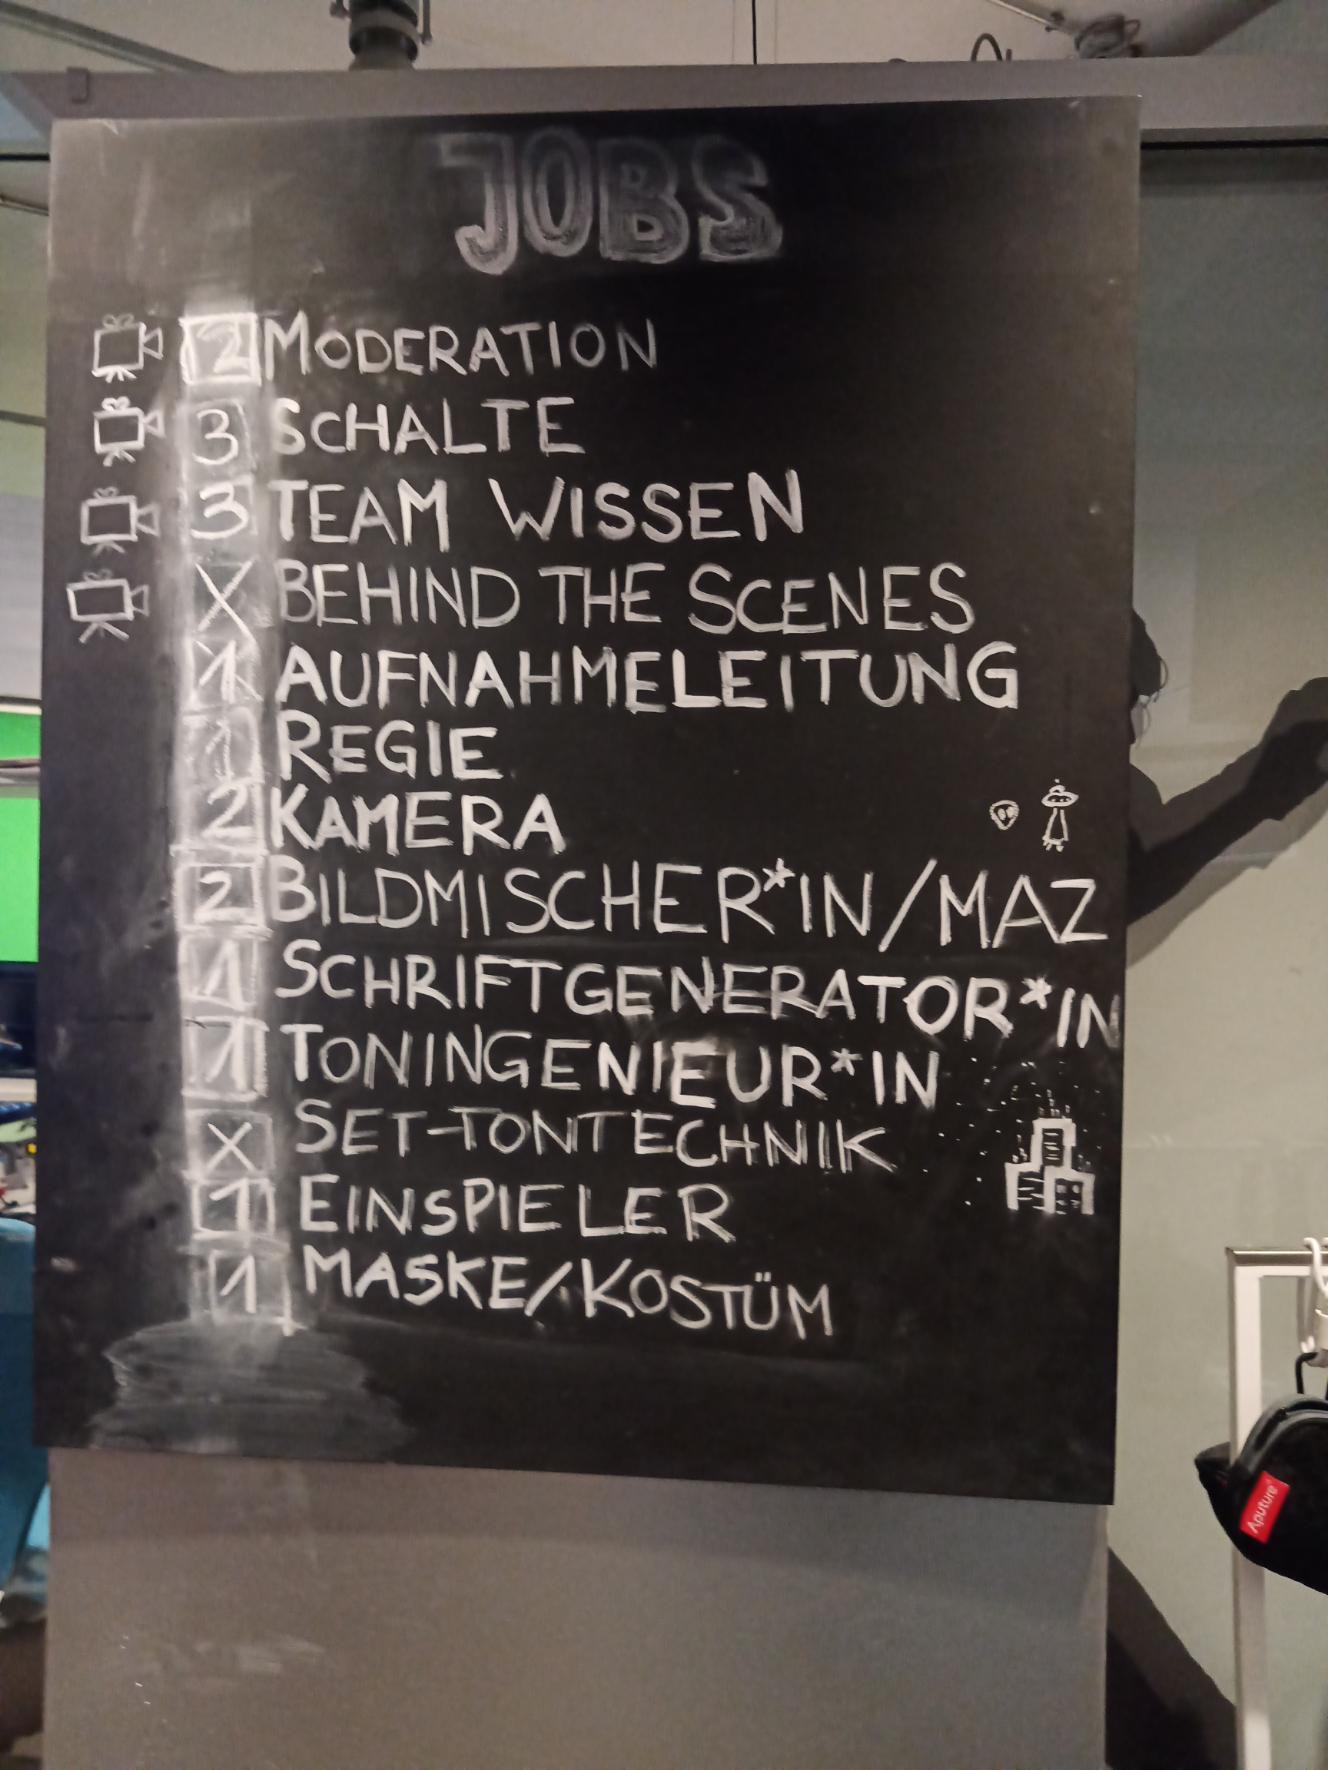 JOBS
2 MODERATION
3 SCHALTE
3 TEAM WISSEN
X BEHIND THE SCENES
1 AUFNAHMELEITUNG
1 REGIE
2 KAMERA
2 BILDMISCHER*IN/MAZ
1 SCHRIFTGENERATOR*IN
1 TONINGENIEUR*IN
X SET-TONTECHNIK
1 EINSPIELER
1 MASKE/KOSTÜM
Aputure